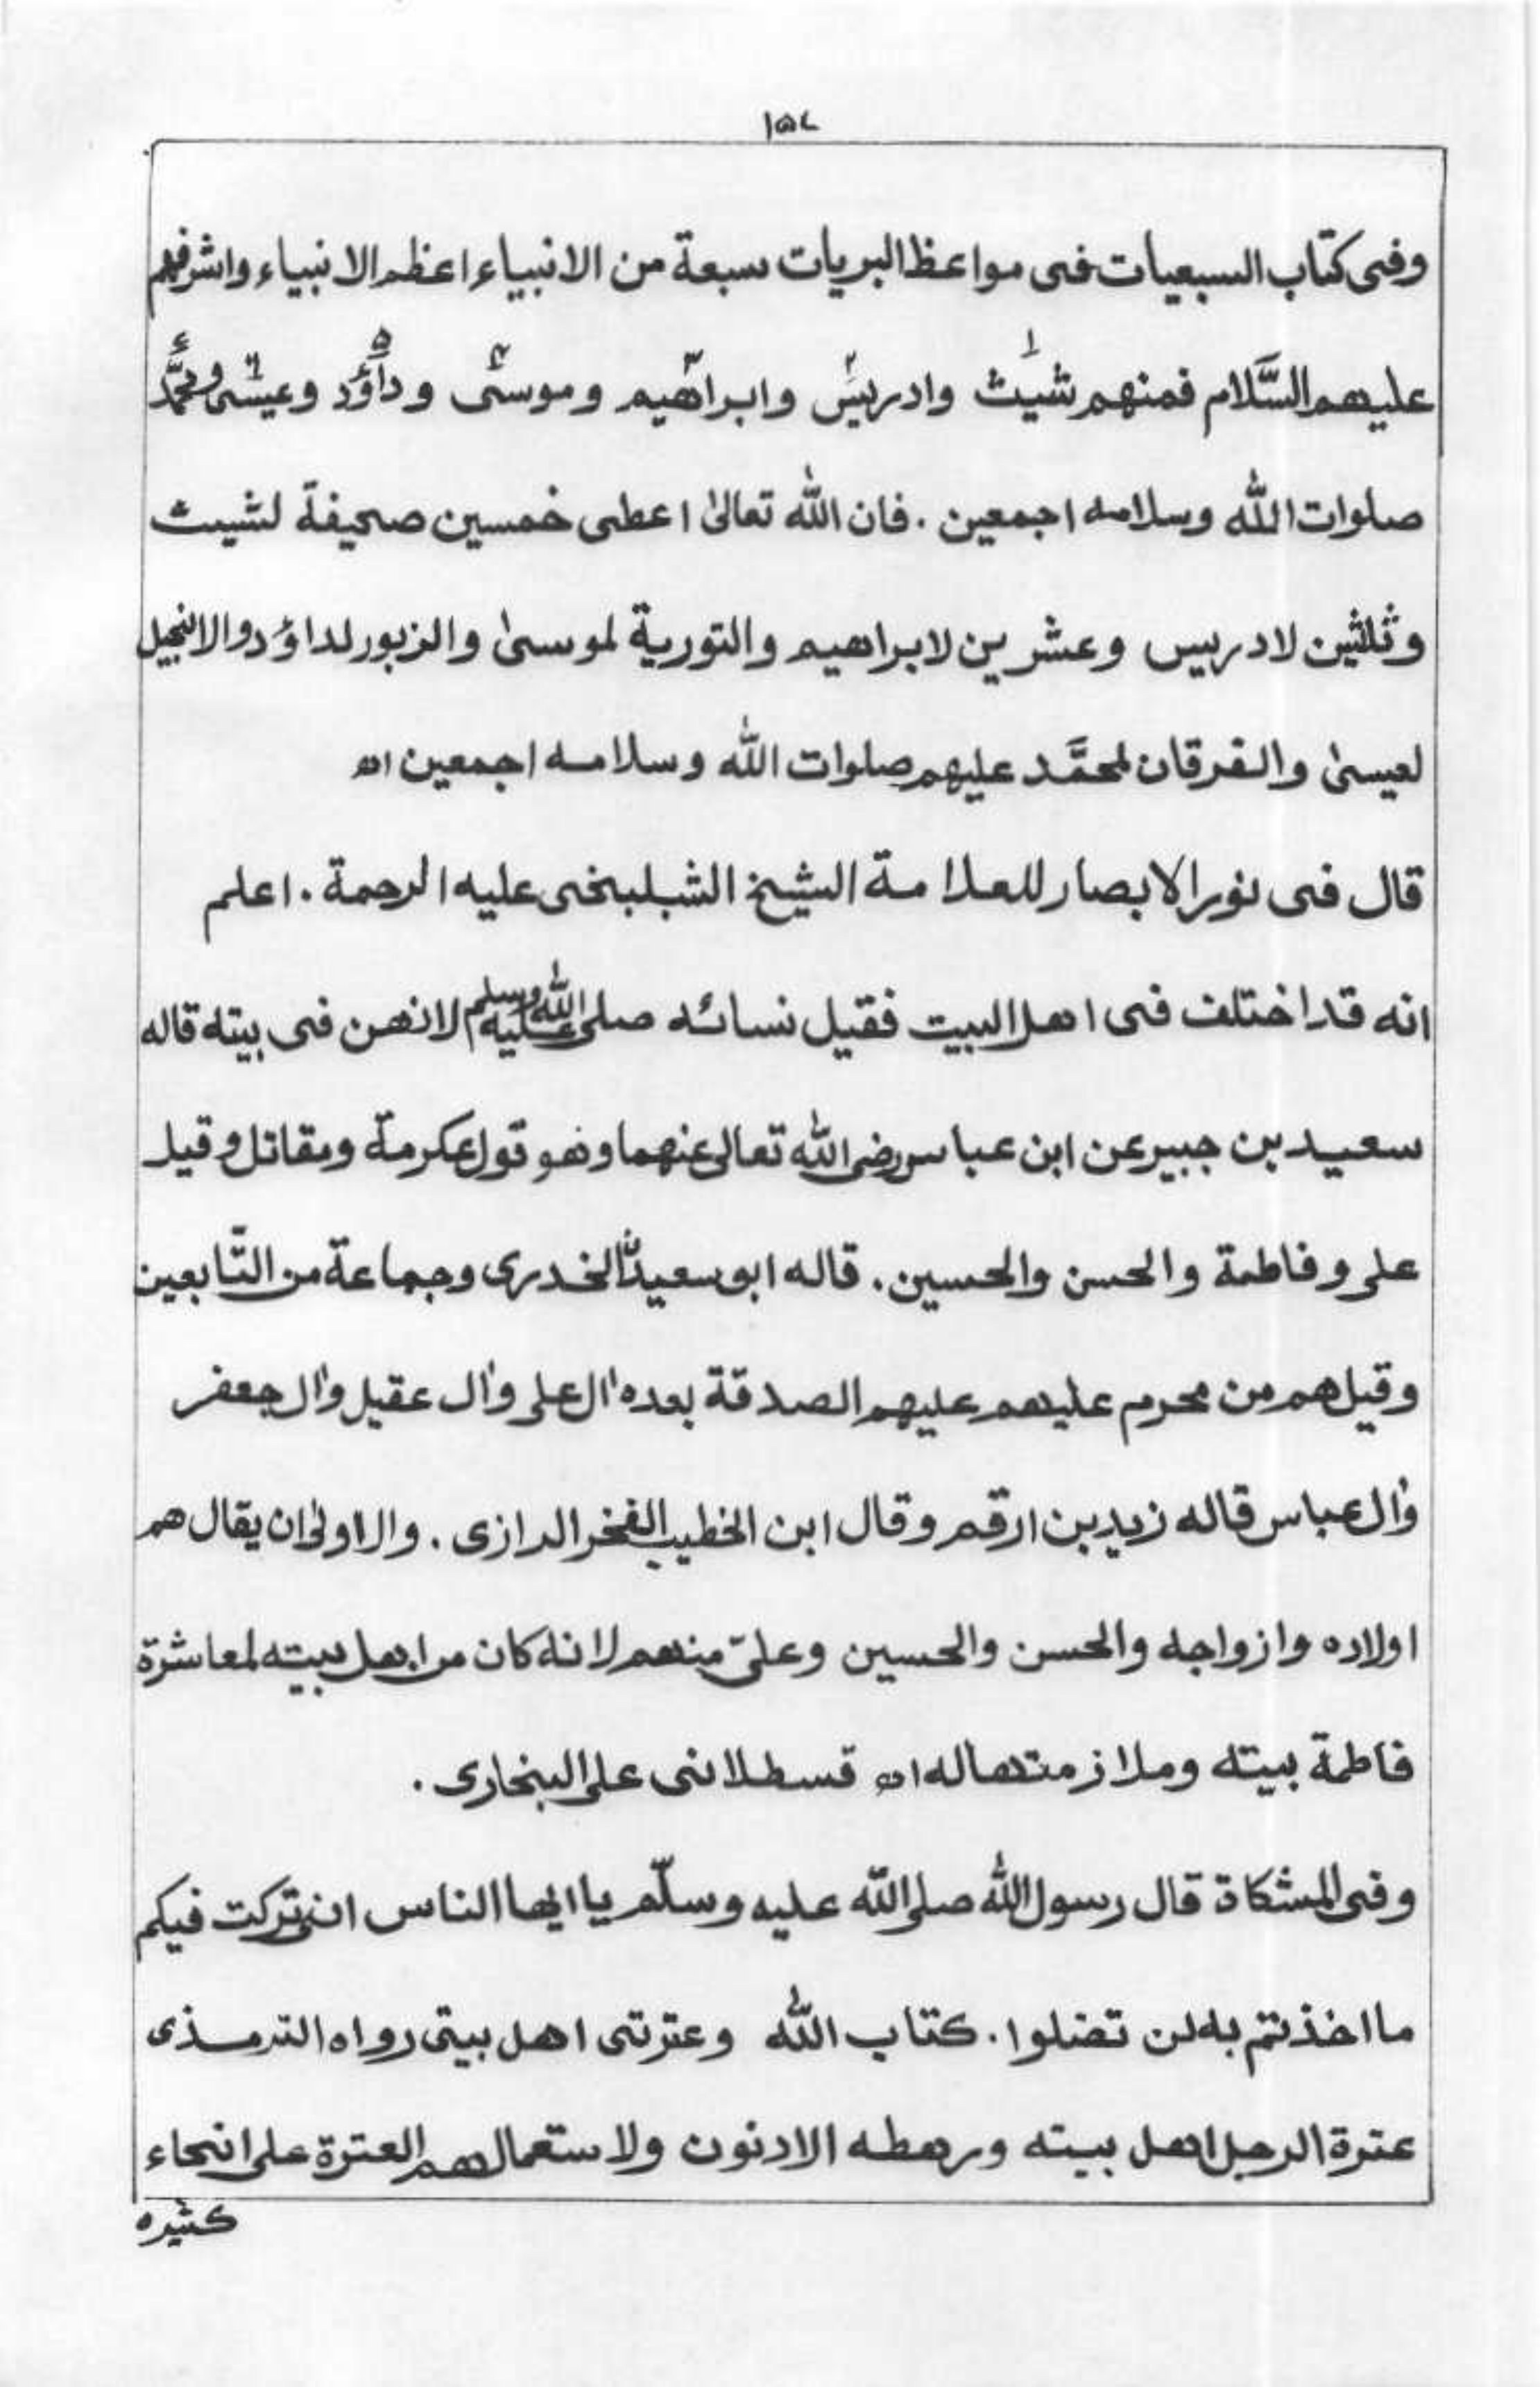 ١٥٨
وفى كتاب السبعيات فى مواعظ البريات سبعة من الانبياء اعظم الانبياء واشرفهم
عليهم السَّلام فمنهم شيث١ وادريس٢ وابراهيم٣ وموسى٤ وداؤد٥ وعيسى٦ ومحمَّد
صلوات الله وسلامه اجمعين . فان الله تعالىٰ اعطى خمسين صحيفة لشيث
وثلثين لادريس وعشرين لابراهيم والتورية لموسىٰ والزبور لداؤد والانجيل
لعيسىٰ والفرقان لمحمَّد عليهم صلوات الله وسلامه اجمعين اھ
قال فى نور الابصار للعلامة الشيخ الشبلبخى عليه الرحمة . اعلم
انه قد اختلف فى اهل البيت فقيل نسائه صلى الله عليه وسلم لانهن فى بيته قاله
سعيد بن جبير عن ابن عباس رضى الله تعالى عنهما وهو قول عكرمة ومقاتل وقيل
على وفاطمة والحسن والحسين . قاله ابو سعيد الخدرى وجماعة من التّابعين
وقيل هم من محرم عليهم عليهم الصدقة بعده اٰل على واٰل عقيل واٰل جعفر
واٰل عباس قاله زيد بن ارقم وقال ابن الخطيب الفخر الرازى . والاولىٰ ان يقال هم
اولاده وازواجه والحسن والحسين وعلىّ منهم لانه كان من اهل بيته لمعاشرة
فاطمة بيته وملازمتهاله اھ قسطلانى على البخارى .
وفى المشكاة قال رسول الله صلى الله عليه وسلّم يا ايها الناس انى تركت فيكم
ما اخذتم به لن تضلوا . كتاب الله وعترتى اهل بيتى رواه الترمذى
عترة الرجل اهل بيته ورهطه الادنون ولاستعمالهم العترة على انحاء
كثيره